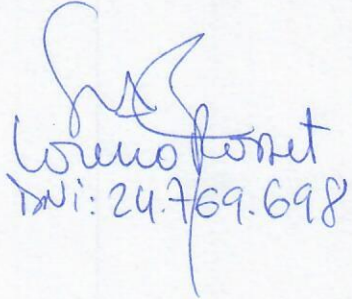 Lorena Rosset
DNi: 24.769.698